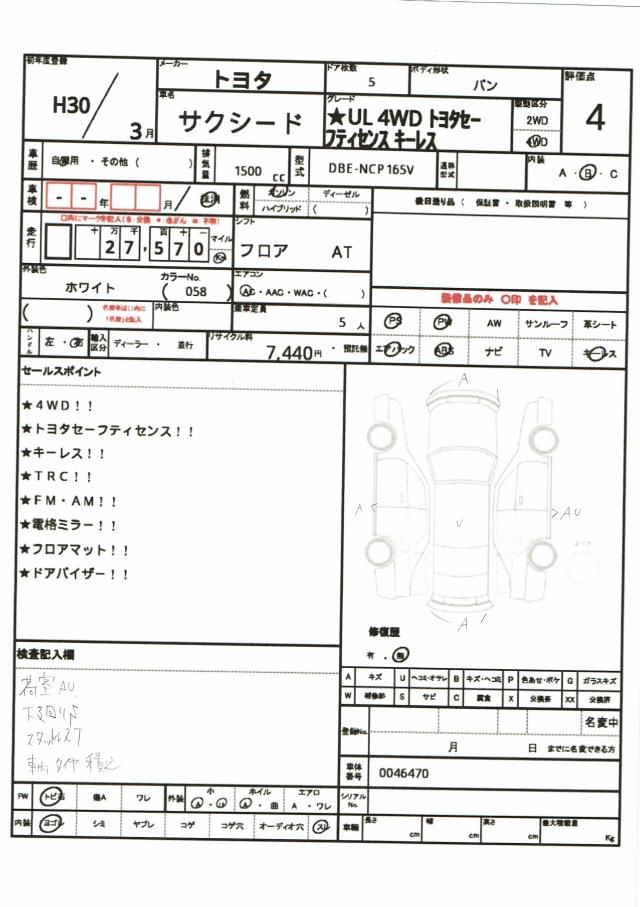 初年度登録 メーカー トヨタ ドア枚数 5 ボディ形状 バン 評価点
H30 / 3月 車名 サクシード グレード ★UL 4WD トヨタセーフティセンス キーレス 駆動区分 2WD 4WD 4
車歴 自家用 ・ その他 ( ) 排気量 1500 cc 型式 DBE-NCP165V 通称型式 内装 A ・ B ・ C
車検 - - 年 月 / 抹消 燃料 ガソリン ディーゼル ハイブリッド ( ) 後日送り品 ( 保証書 ・ 取扱説明書 等 )
走行 十 万 千 百 十 一
27,570 マイル Km シフト フロア AT
外装色 ホワイト カラーNo. ( 058 ) エアコン AC ・ AAC ・ WAC ・ ( )
装備品のみ 〇印 を記入
( ) 内装色 乗車定員 5 人 PS PW AW サンルーフ 革シート
ハンドル 左 ・ 右 輸入区分 ディーラー ・ 並行 リサイクル料 7,440円 ・ 預託無 エアバック ABS ナビ TV キーレス
セールスポイント
★4WD!!
★トヨタセーフティセンス!!
★キーレス!!
★TRC!!
★FM・AM!!
★電格ミラー!!
★フロアマット!!
★ドアバイザー!!
A
A
AU
U
A
スペア
修復歴
有 ・ 無
検査記入欄
荷室AU
下回りS
スタッドレスT
車内タイヤ積込
A キズ U ヘコミ・オサレ B キズ・ヘコミ P 色あせ・ボケ G ガラスキズ
W 補修跡 S サビ C 腐食 X 交換要 XX 交換済
登録No. 名変中
月 日 までに名変できる方
車体番号 0046470
シリアルNo.
FW トビ石 傷A ワレ 外装 小 A ・ U ホイル A ・ 曲 エアロ A ・ ワレ
内装 ヨゴレ シミ ヤブレ コゲ コゲ穴 オーディオ穴 スレ 車輌 長さ cm 幅 cm 高さ cm 最大積載量 Kg